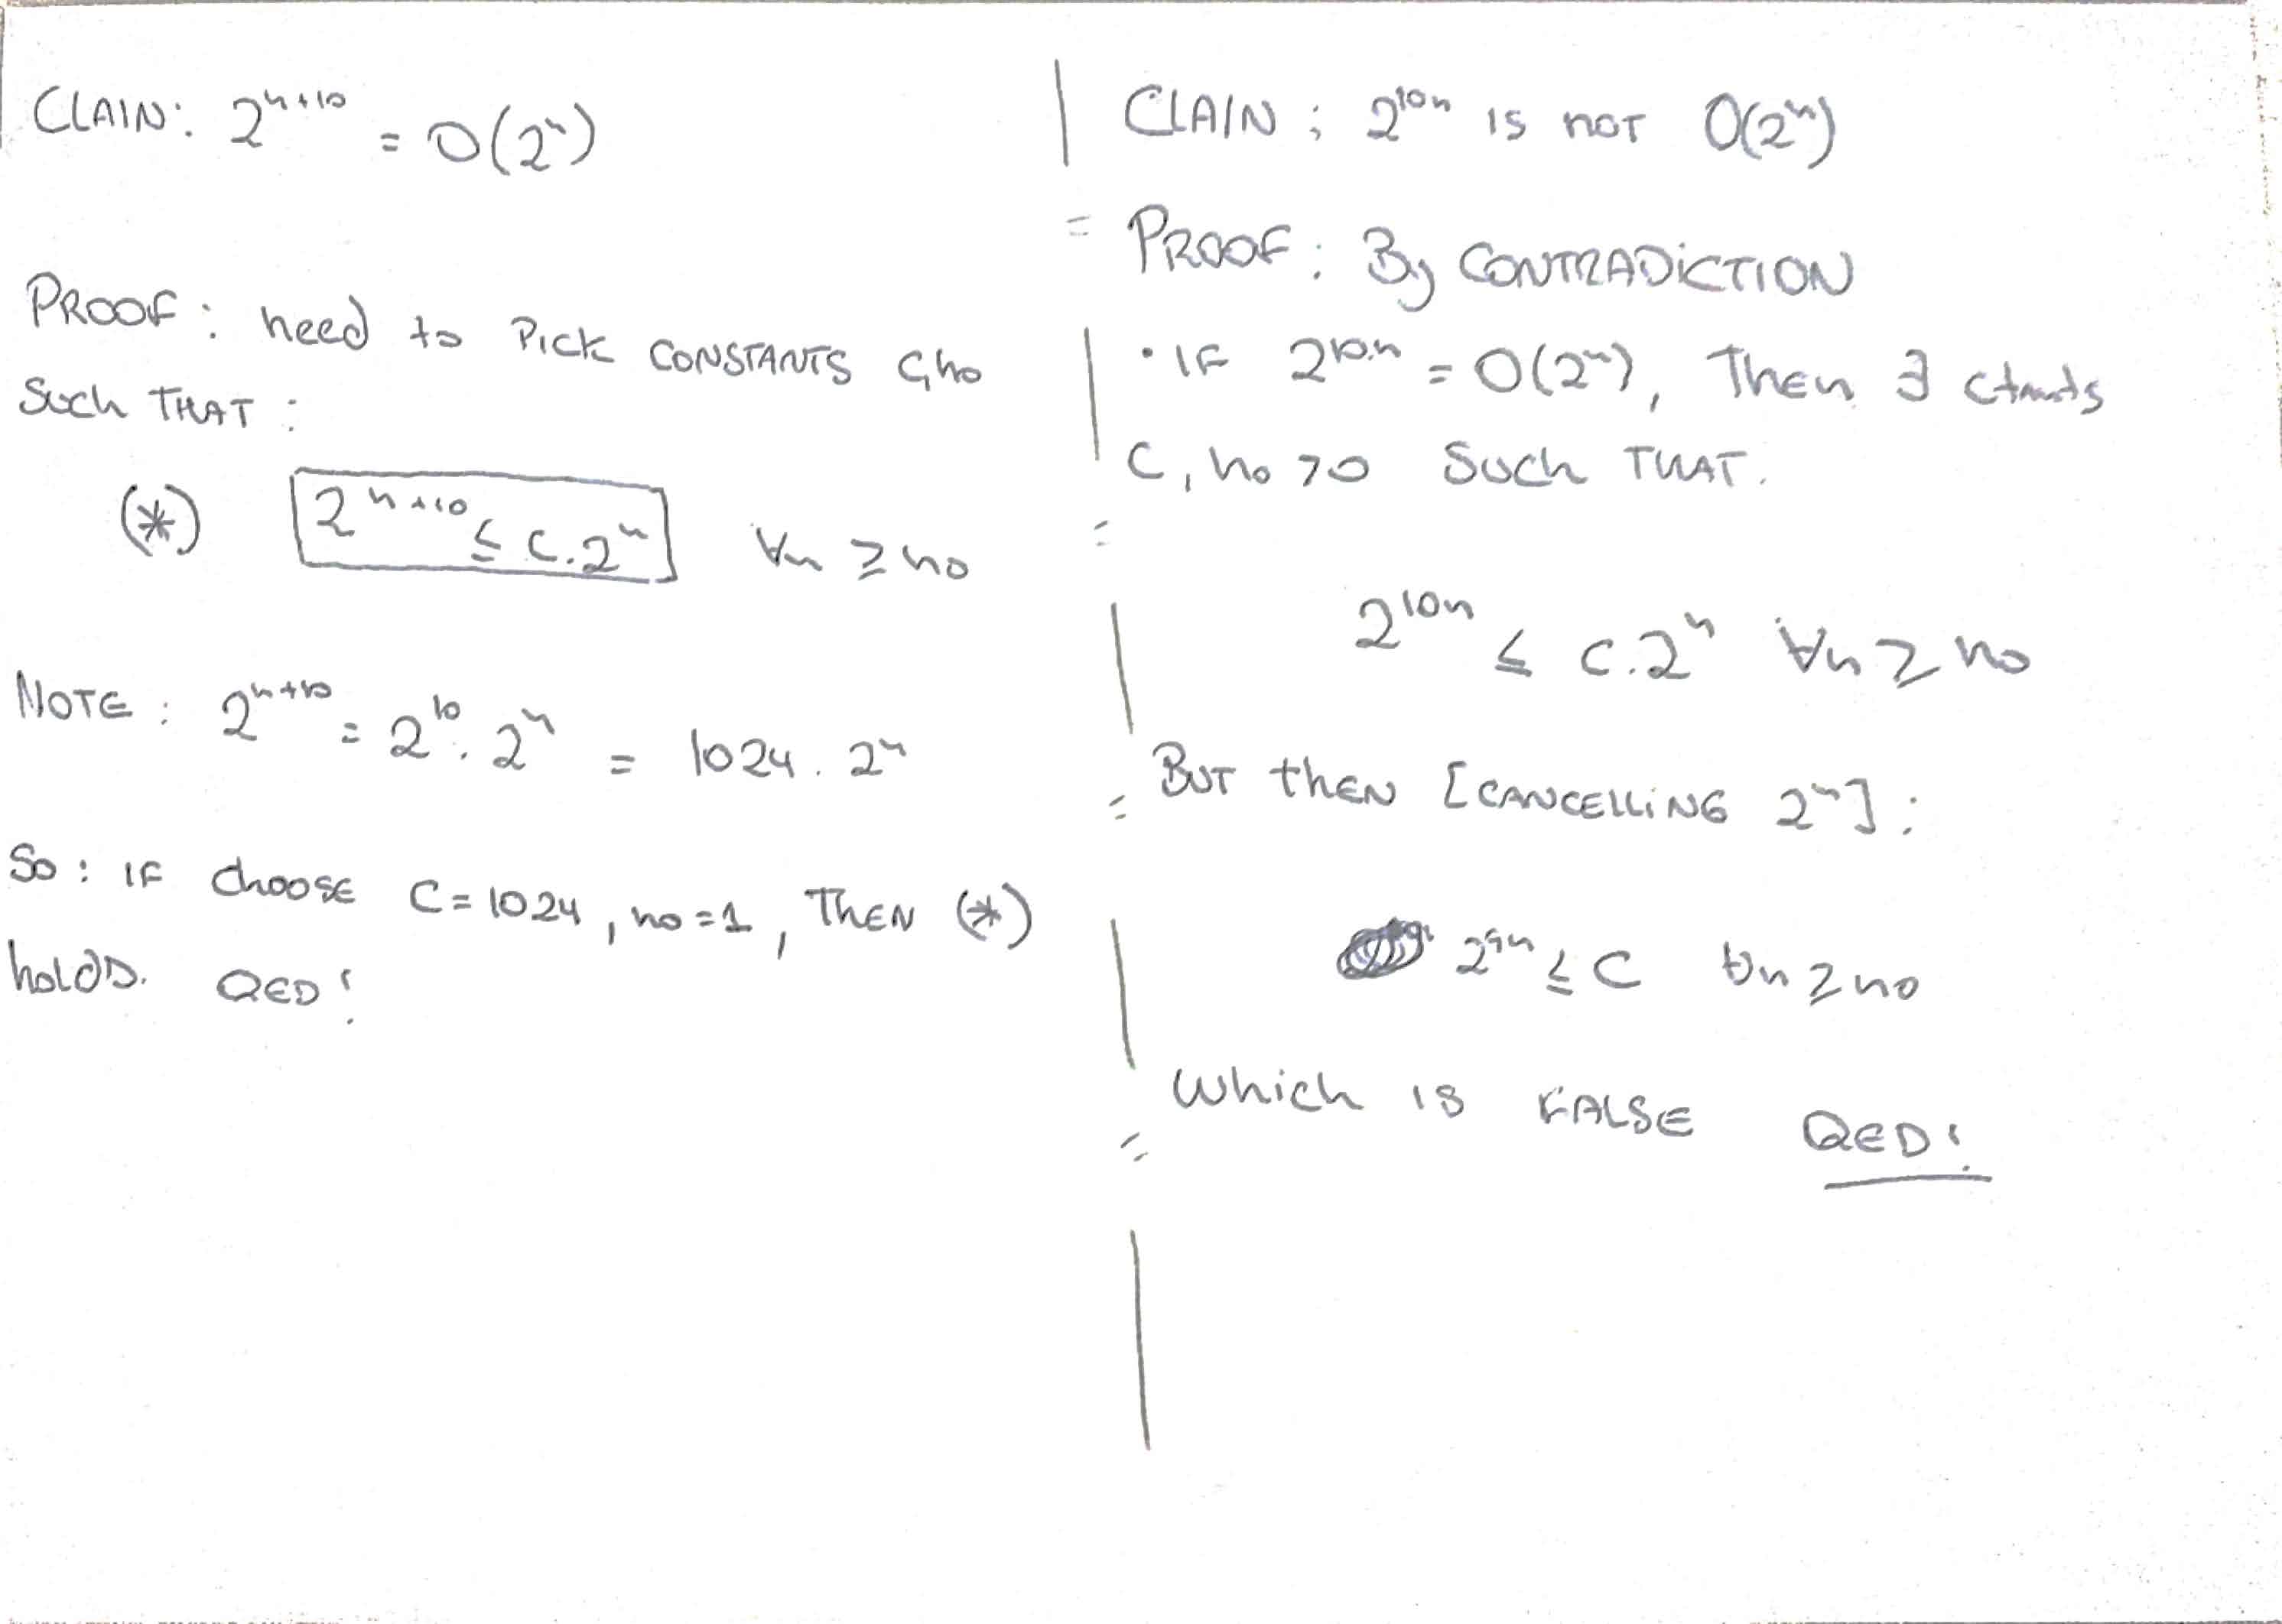 CLAIN: 2^{n+10} = O(2^n)
PROOF: need to Pick CONSTANTS C,no
Such THAT:
(*) 2^{n+10} ≤ C.2^n ∀n ≥ no
NOTE: 2^{n+10} = 2^{10}.2^n = 1024.2^n
So: IF choose C=1024, no=1, THEN (*)
holds. QED!
CLAIN: 2^{10n} is not O(2^n)
PROOF: By CONTRADICTION
• IF 2^{10.n} = O(2^n), Then ∃
C, no >0 Such THAT.
2^{10n} ≤ C.2^n ∀n ≥ no
BUT then [CANCELLING 2^n]:
2^{9n} ≤ C ∀n ≥ no
Which is FALSE QED!